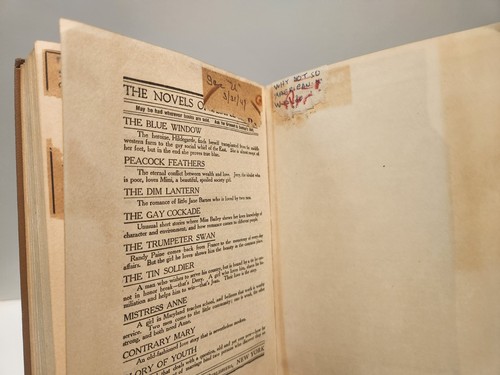 THE NOVELS OF
May be had wherever books are sold. Ask for
THE BLUE WINDOW
The heroine, Hildegarde, finds herself transplanted from the middle
western farm to the gay social whirl of the East. She is almost swept off
her feet, but in the end she proves true blue.
PEACOCK FEATHERS
The eternal conflict between wealth and love. Jerry, the idealist who
is poor, loves Mimi, a beautiful, spoiled society girl.
THE DIM LANTERN
The romance of little Jane Barnes who is loved by two men.
THE GAY COCKADE
Unusual short stories where Miss Bailey shows her keen knowledge of
character and environment, and how romance comes to different people.
THE TRUMPETER SWAN
Randy Paine comes back from France to the monotony of every-day
affairs. But the girl he loves shows him the beauty in the common place.
THE TIN SOLDIER
A man who wishes to serve his country, but is bound by a tie he can-
not in honor break—that's Derry. A girl who loves him, shares his hu-
miliation and helps him to win—that's Jean. Their love is the story.
MISTRESS ANNE
A girl in Maryland teaches school, and believes that work is worthy
service. Two men come to the little community; one is weak, the other
strong, and both need Anne.
CONTRARY MARY
An old-fashioned love story that is nevertheless modern.
GLORY OF YOUTH
NEW YORK
3/21/49
WHY NOT SO